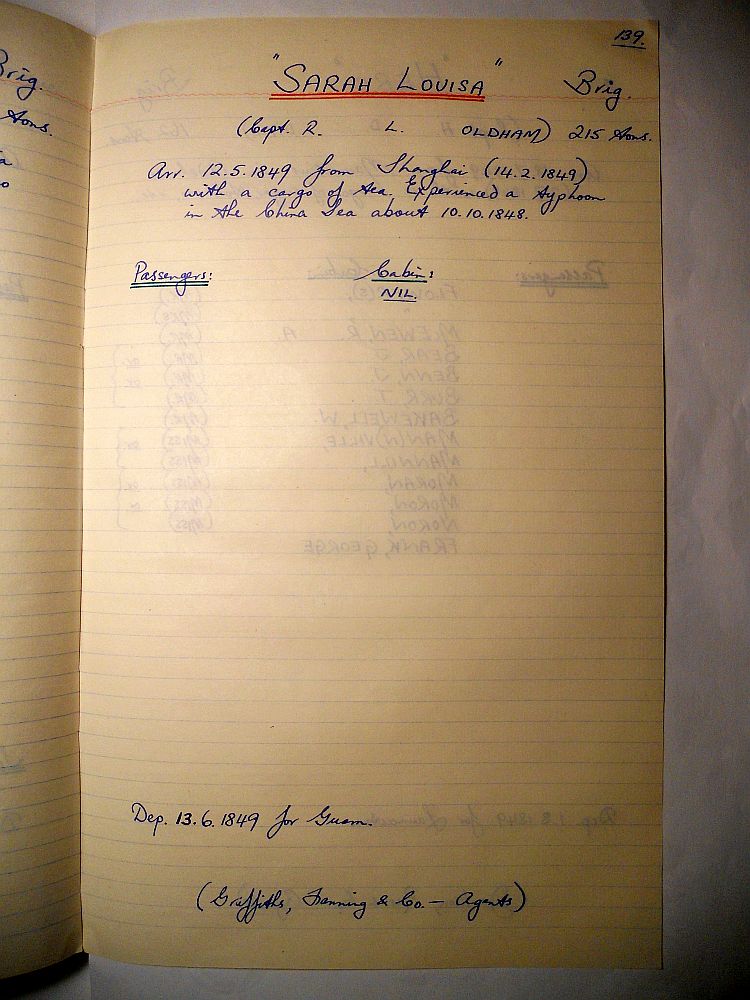 139.
"SARAH LOUISA" Brig.
(Capt. R. L. OLDHAM) 215 tons.
Arr. 12.5.1849 from Shanghai (14.2.1849)
with a cargo of tea. Experienced a typhoon
in the China Sea about 10.10.1848.
Passengers: Cabin:
NIL.
Dep. 13.6.1849 for Guam.
(Griffiths, Fanning & Co. — Agents)
Brig.
tons.